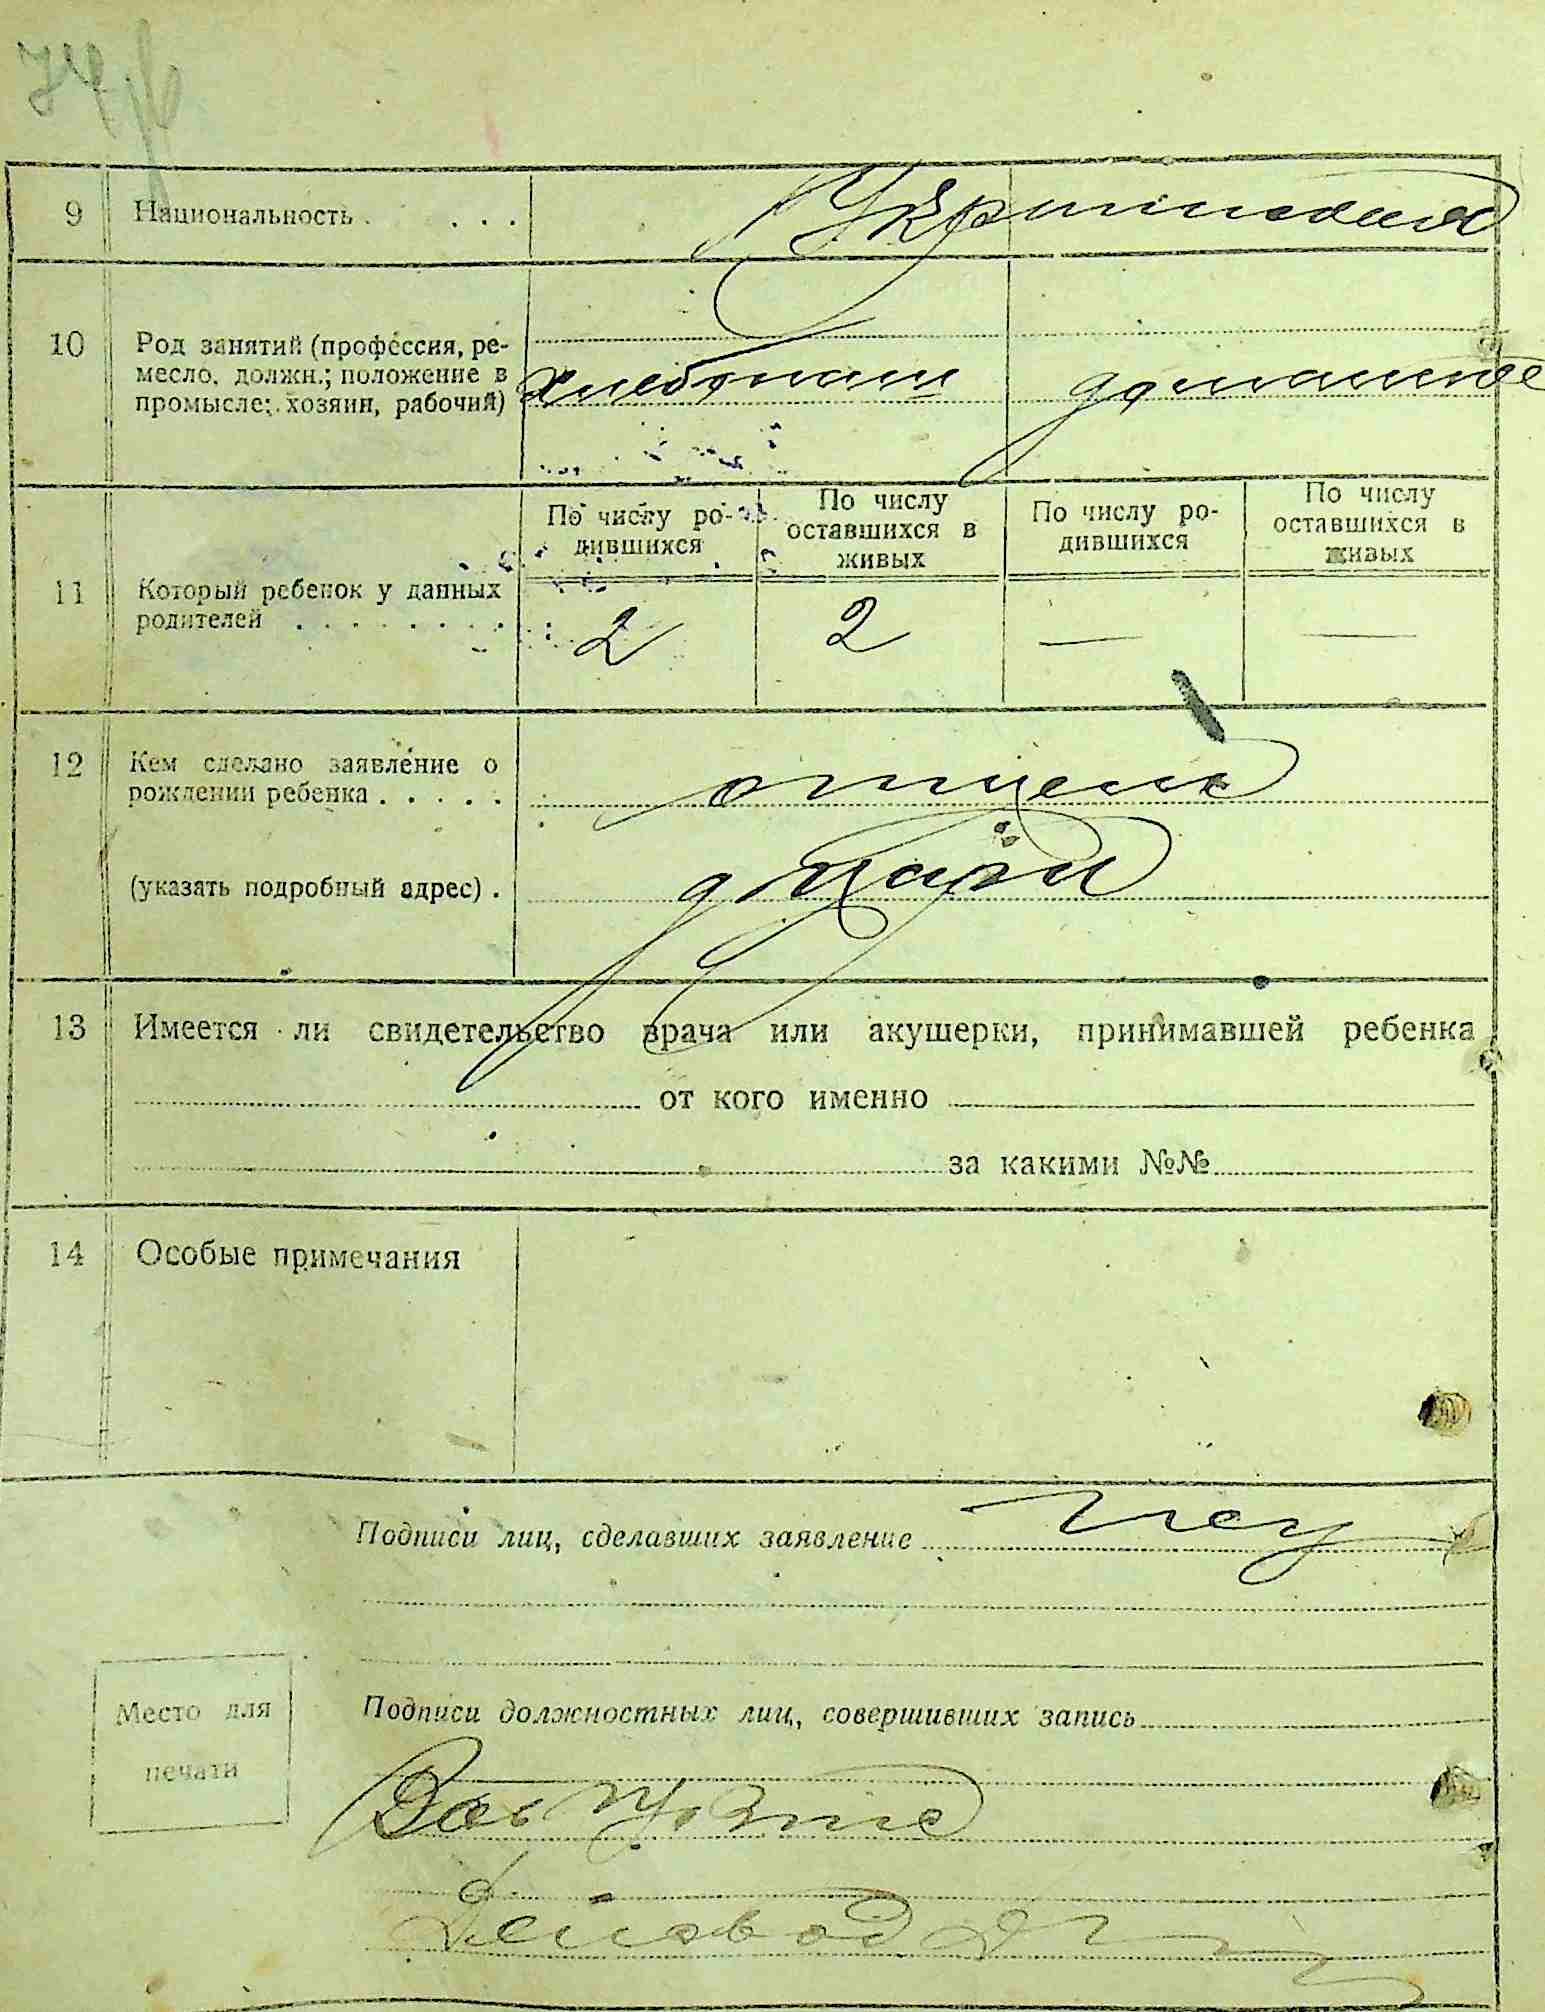 9 Национальность . . . .
10 Род занятий (профессия, ре-
месло, должн.; положение в
промысле: хозяин, рабочий)
хлебопаш домашнее
11 Который ребенок у данных
родителей . . . . . . . .
По числу ро-
дившихся
По числу
оставшихся в
живых
По числу ро-
дившихся
По числу
оставшихся в
живых
2 2 — —
12 Кем сделано заявление о
рождении ребенка . . . . .
отцем
(указать подробный адрес) .
13 Имеется ли свидетельство врача или акушерки, принимавшей ребенка
от кого именно
за какими №№
14 Особые примечания
Подписи лиц, сделавших заявление
Место для
печати
Подписи должностных лиц, совершивших запись
Деловод